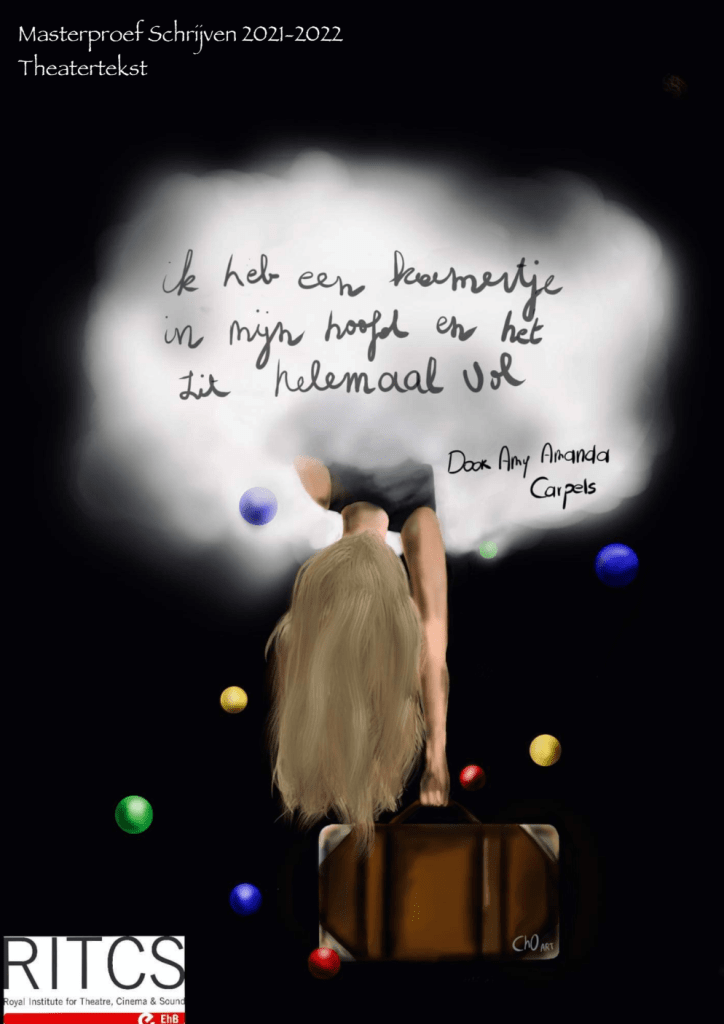 Masterproef Schrijven 2021-2022
Theatertekst
ik heb een kamertje
in mijn hoofd en het
zit helemaal vol
Door Amy Amanda
Carpels
ChO ART
RITCS
Royal Institute for Theatre, Cinema & Sound
EhB